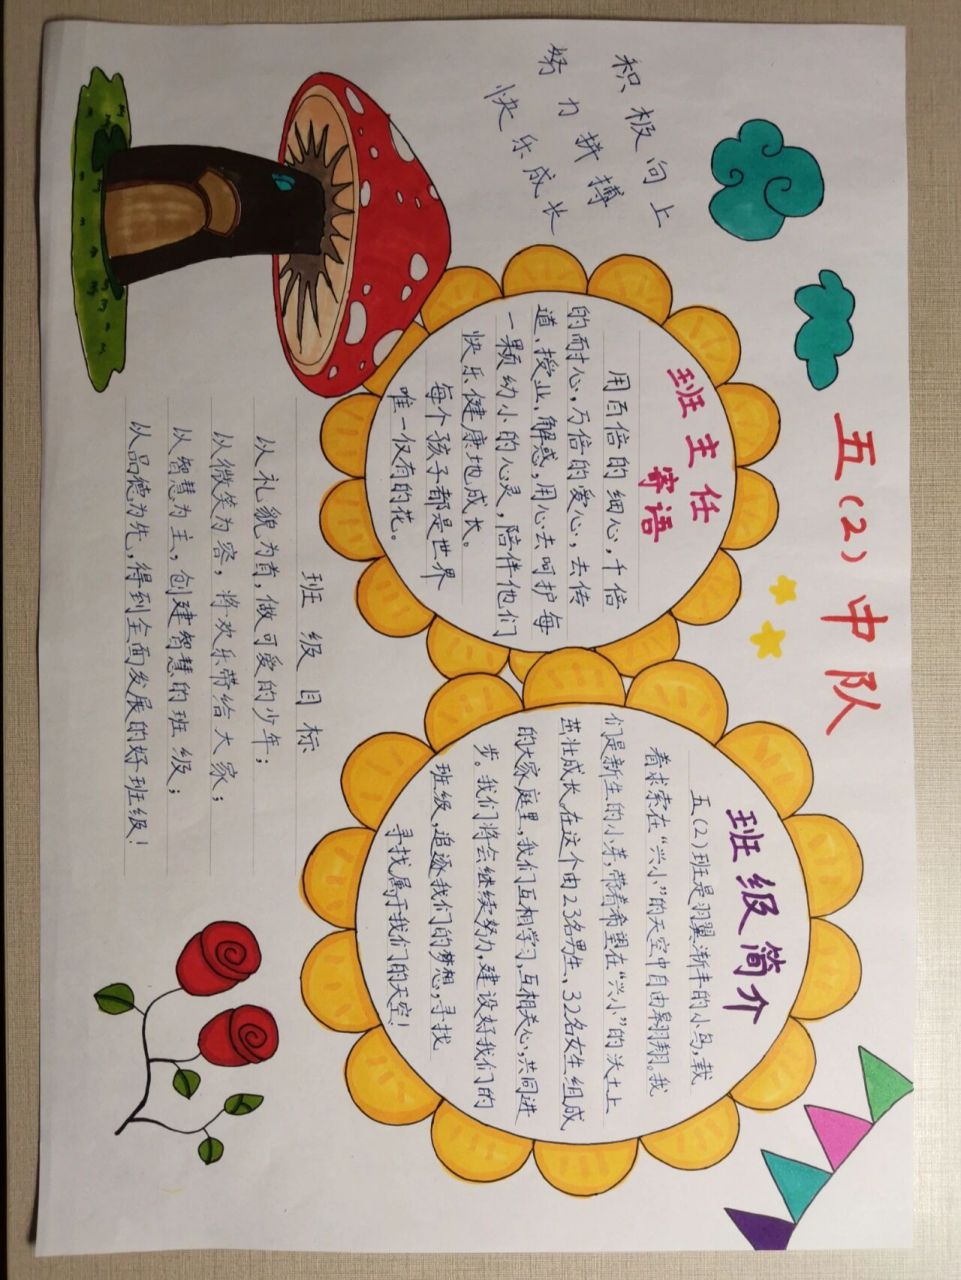 五(2)中队
积极向上
努力拼搏
快乐成长
班主任
寄语
用百倍的细心，千倍
的耐心，万倍的爱心，去传
道、授业、解惑，用心去呵护每
一颗幼小的心灵，陪伴他们
快乐健康地成长。
每个孩子都是世界
唯一仅有的花。
班级简介
五(2)班是羽翼渐丰的小鸟，载
着求索在“兴小”的天空中自由翱翔。我
们是新生的小芽，带着希望在“兴小”的沃土上
茁壮成长。在这个由23名男生，32名女生组成
的大家庭里，我们互相学习，互相关心，共同进
步。我们将会继续努力，建设好我们的
班级，追逐我们的梦想，寻找
寻找属于我们的天空！
班级目标
以礼貌为首，做可爱的少年；
以微笑为容，将欢乐带给大家；
以智慧为主，创建智慧的班级；
以品德为先，得到全面发展的好班级！